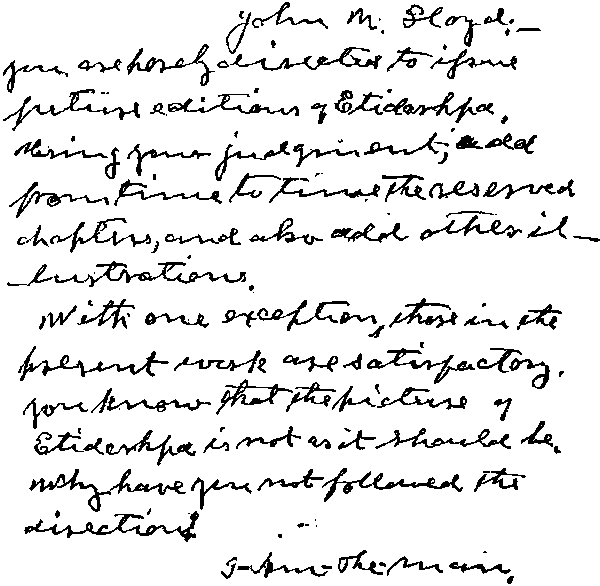 John M. Lloyd:—
you are hereby directed to issue
future editions of Etidorhpa,
Using your judgment; add
from time to time the reserved
chapters, and also add other il—
—lustrations.
With one exception, those in the
present work are satisfactory.
you know that the picture of
Etidorhpa is not as it should be.
Why have you not followed the
directions?
I-Am-The-Man.